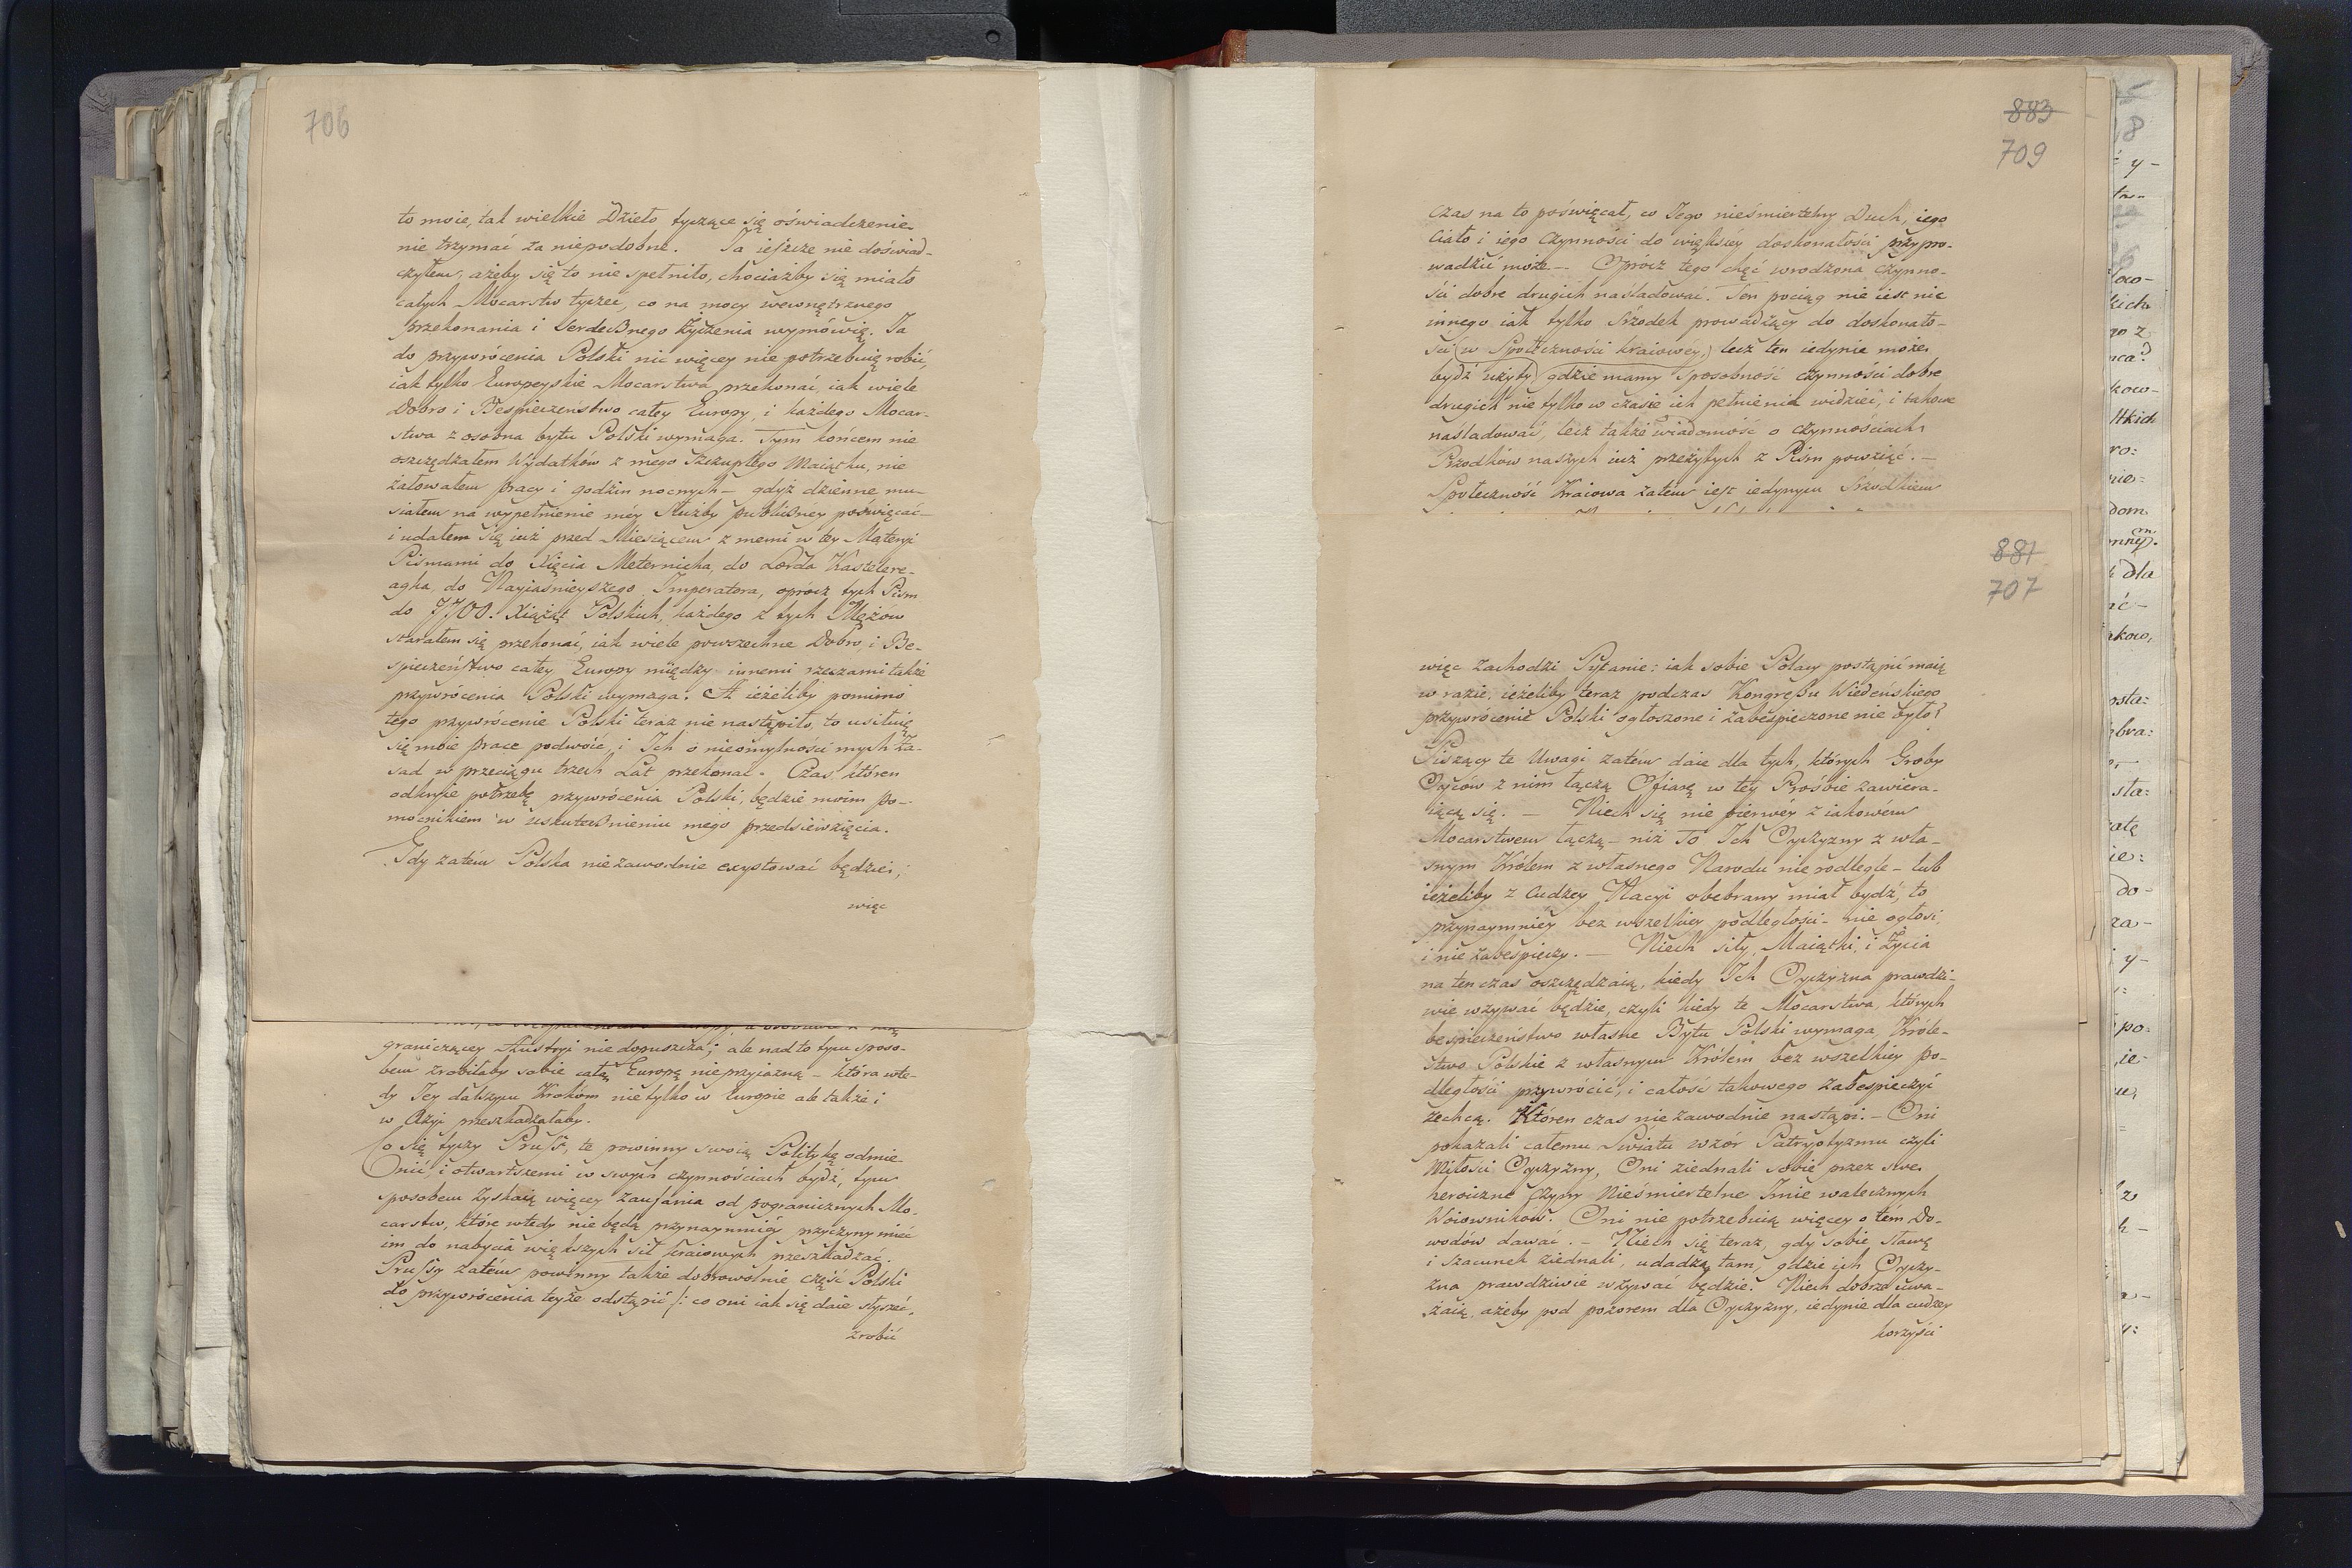 706
to moie, tak wielkie Dzieło tyczące się oświadczenie
nie trzymać za niepodobne. Ja ieszcze nie doświad-
czyłem, ażeby się to nie spełniło, chociażby się miało
całych Mocarstw tyczeć, co na mocy wewnętrznego
przekonania i serdecznego życzenia wymówię. Ja
do przywrócenia Polski nic więcey nie potrzebuię robić,
iak tylko Europeyskie Mocarstwa przekonać, iak wiele
Dobro i Bespieczeństwo całey Europy, i każdego Mocar-
stwa z osobna bytu Polski wymaga. Tym końcem nie
oszczędzałem Wydatków z mego szczupłego Maiątku, nie
żałowałem pracy i godzin nocnych – gdyż dzienne mu-
siałem na wypełnienie méy służby publiczney poświęcać –
i udałem się iuż przed Miesiącem z memi w tey Materyi
Pismami do Xięcia Meternicha, do Lorda Kastelere-
agha, do Nayiaśnieyszego Imperatora, oprócz tych Pism
do JJOO. Xiążąt Polskich, każdego z tych Mężów
starałem się przekonać, iak wiele powszechne Dobro, i Be-
spieczeństwo całey Europy między innemi rzeczami także
przywrócenia Polski wymaga. A ieżeliby pomimo
tego przywrócenie Polski teraz nie nastąpiło, to usiłuię
się moie prace podwoić, i Ich o nieomylności mych Za-
sad w przeciągu trzech Lat przekonać. Czas któren
odkryie potrzebę przywrócenia Polski, będzie moim po-
mocnikiem w uskutecznieniu mego przedsięwzięcia.
Gdy zatém Polska niezawodnie exystować będzie,
więc
graniczącey Austryi nie dopuszcza; ale nad to tym sposo-
bem zrobiłaby sobie całą Europę nieprzyiazną – która wte-
dy Jey dalszym Krokóm nie tylko w Europie ale także i
w Azyi przeszkadzałaby.
Co się tyczy Pruss, te powinny swoią Politykę odmie-
nić, i otwartszemi w swych czynnościach bydź, tym
sposobem zyskaią więcey zaufania od pogranicznych Mo-
carstw, które wtedy nie będą przynaymniéy przyczyny mieć
im do nabycia większych sił kraiowych przeszkadzać.
Prussy zatém powinny także dobrowolnie część Polski
do przywrócenia teyże odstąpić /: co oni iak się daie słyszeć,
zrobić
883
709
czas na to poświęcał, co Jego nieśmiertelny Duch, iego
Ciało i iego Czynności do większéy doskonałości przypro-
wadzić może. – Oprócz tego chęć wrodzona czynno-
ści dobre drugich naśladować. Ten pociąg nie iest nic
innego iak tylko śrzodek prowadzący do doskonało-
ści (w Społeczności kraiowéy,) lecz ten iedynie może
bydź użyty, gdzie mamy sposobność czynności dobre
drugich nie tylko w czasie ich pełnienia widzieć, i takowe
naśladować, lecz także wiadomość o czynnościach
Przodków naszych iuż przeżytych z Pism powziąć. –
Społeczność Kraiowa zatém iest iedynym śrzodkiem
881
707
więc zachodzi Pytanie: iak sobie Polacy postąpić maią
w razie, ieżeliby teraz podczas Kongressu Wiedeńskiego
przywrócenie Polski ogłoszone i zabespieczone nie było?
Piszący te Uwagi zatém daie dla tych, których Groby
Oyców z nim łączą Ofiarę w tey Prośbie zawiera-
iącą się. – Niech się nie pierwéy z iakowém
Mocarstwem łączą – niż To Ich Oyczyzny z wła-
snym Królem z własnego Narodu nie podległe – lub
ieżeliby z Cudzey Nacyi obebrany miał bydź, to
przynaymniéy bez wszelkiey podległości – nie ogłosi
i nie zabespieczy. – Niech siły, Maiątki, i Życia
na ten czas oszczędzaią, kiedy Ich Oyczyzna prawdzi-
wie wzywać będzie, czyli kiedy te Mocarstwa, których
bespieczeństwo własne Bytu Polski wymaga, Króle-
stwo Polskie z własnym Królem bez wszelkiey po-
dległości przywrócić, i całość takowego zabespieczyć
zechcą. Któren czas niezawodnie nastąpi. – Oni
pokazali całemu Światu wzór Patryotyzmu czyli
Miłości Oyczyzny, Oni ziednali sobie przez swe
heroiczne Czyny Nieśmiertelne Imie walecznych
Woiowników. Oni nie potrzebuią więcey o tém Do-
wodów dawać. – Niech się teraz, gdy sobie sławę
i szacunek ziednali, udadzą tam, gdzie ich Oyczy-
zna prawdziwie wzywać będzie. Niech dobrze uwa-
żaią, ażeby pod pozorem dla Oyczyzny, iedynie dla cudzey
korzyści